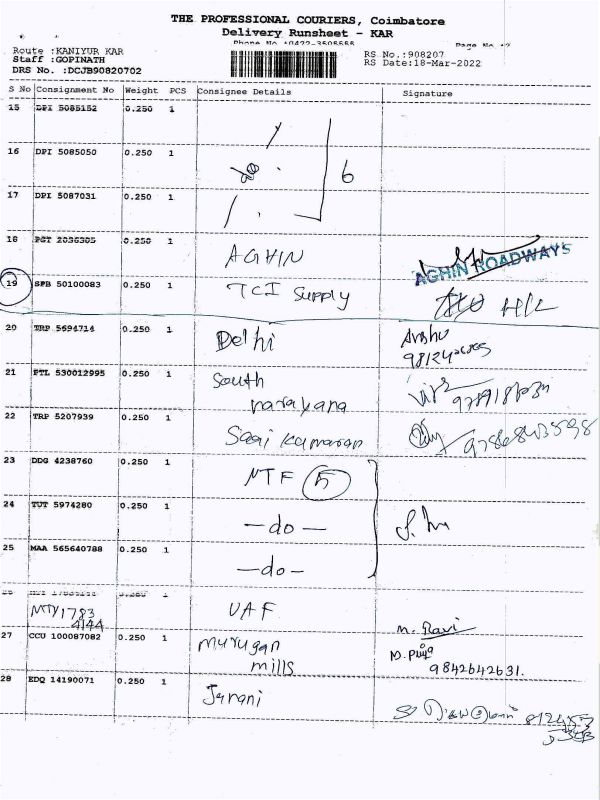 THE PROFESSIONAL COURIERS, Coimbatore
Delivery Runsheet - KAR
Phone No :0422-3505555
Page No :2
Route :KANIYUR KAR
RS No.:908207
Staff :GOPINATH
RS Date:18-Mar-2022
DRS No. :DCJB90820702
S No Consignment No Weight PCS Consignee Details Signature
15 DPI 5085152 0.250 1
16 DPI 5085050 0.250 1 6
17 DPI 5087031 0.250 1
18 PGT 2036305 0.250 1 AGHIN
AGHIN ROADWAYS
19 SPB 50100083 0.250 1 TCI Supply H/L
20 TRP 5694714 0.250 1 Delhi Anshu
21 PTL 530012995 0.250 1 South
narayana
22 TRP 5207939 0.250 1 Saai Kumaran
23 DDG 4238760 0.250 1 NTF 5
24 TUT 5974280 0.250 1 -do-
25 MAA 565640788 0.250 1 -do-
MTY 1783 UAF
4144 M. Ravi
27 CCU 100087082 0.250 1 Murugan
mills
9842642631.
28 EDQ 14190071 0.250 1 Janani